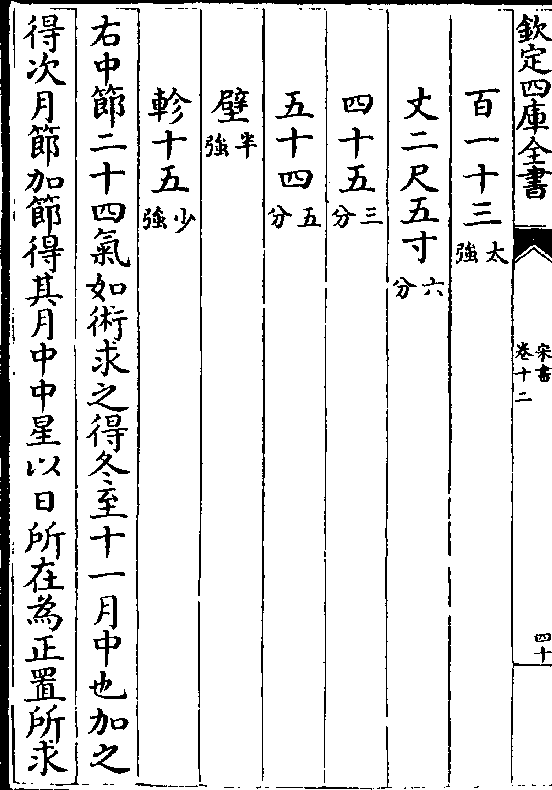 欽定四庫全書
宋書
卷十二
四十
百一十三太強
丈二尺五寸六分
四十五三分
五十四五分
壁半強
軫十五少強
右中節二十四氣如術求之得冬至十一月中也加之
得次月節加節得其月中中星以日所在為正置所求